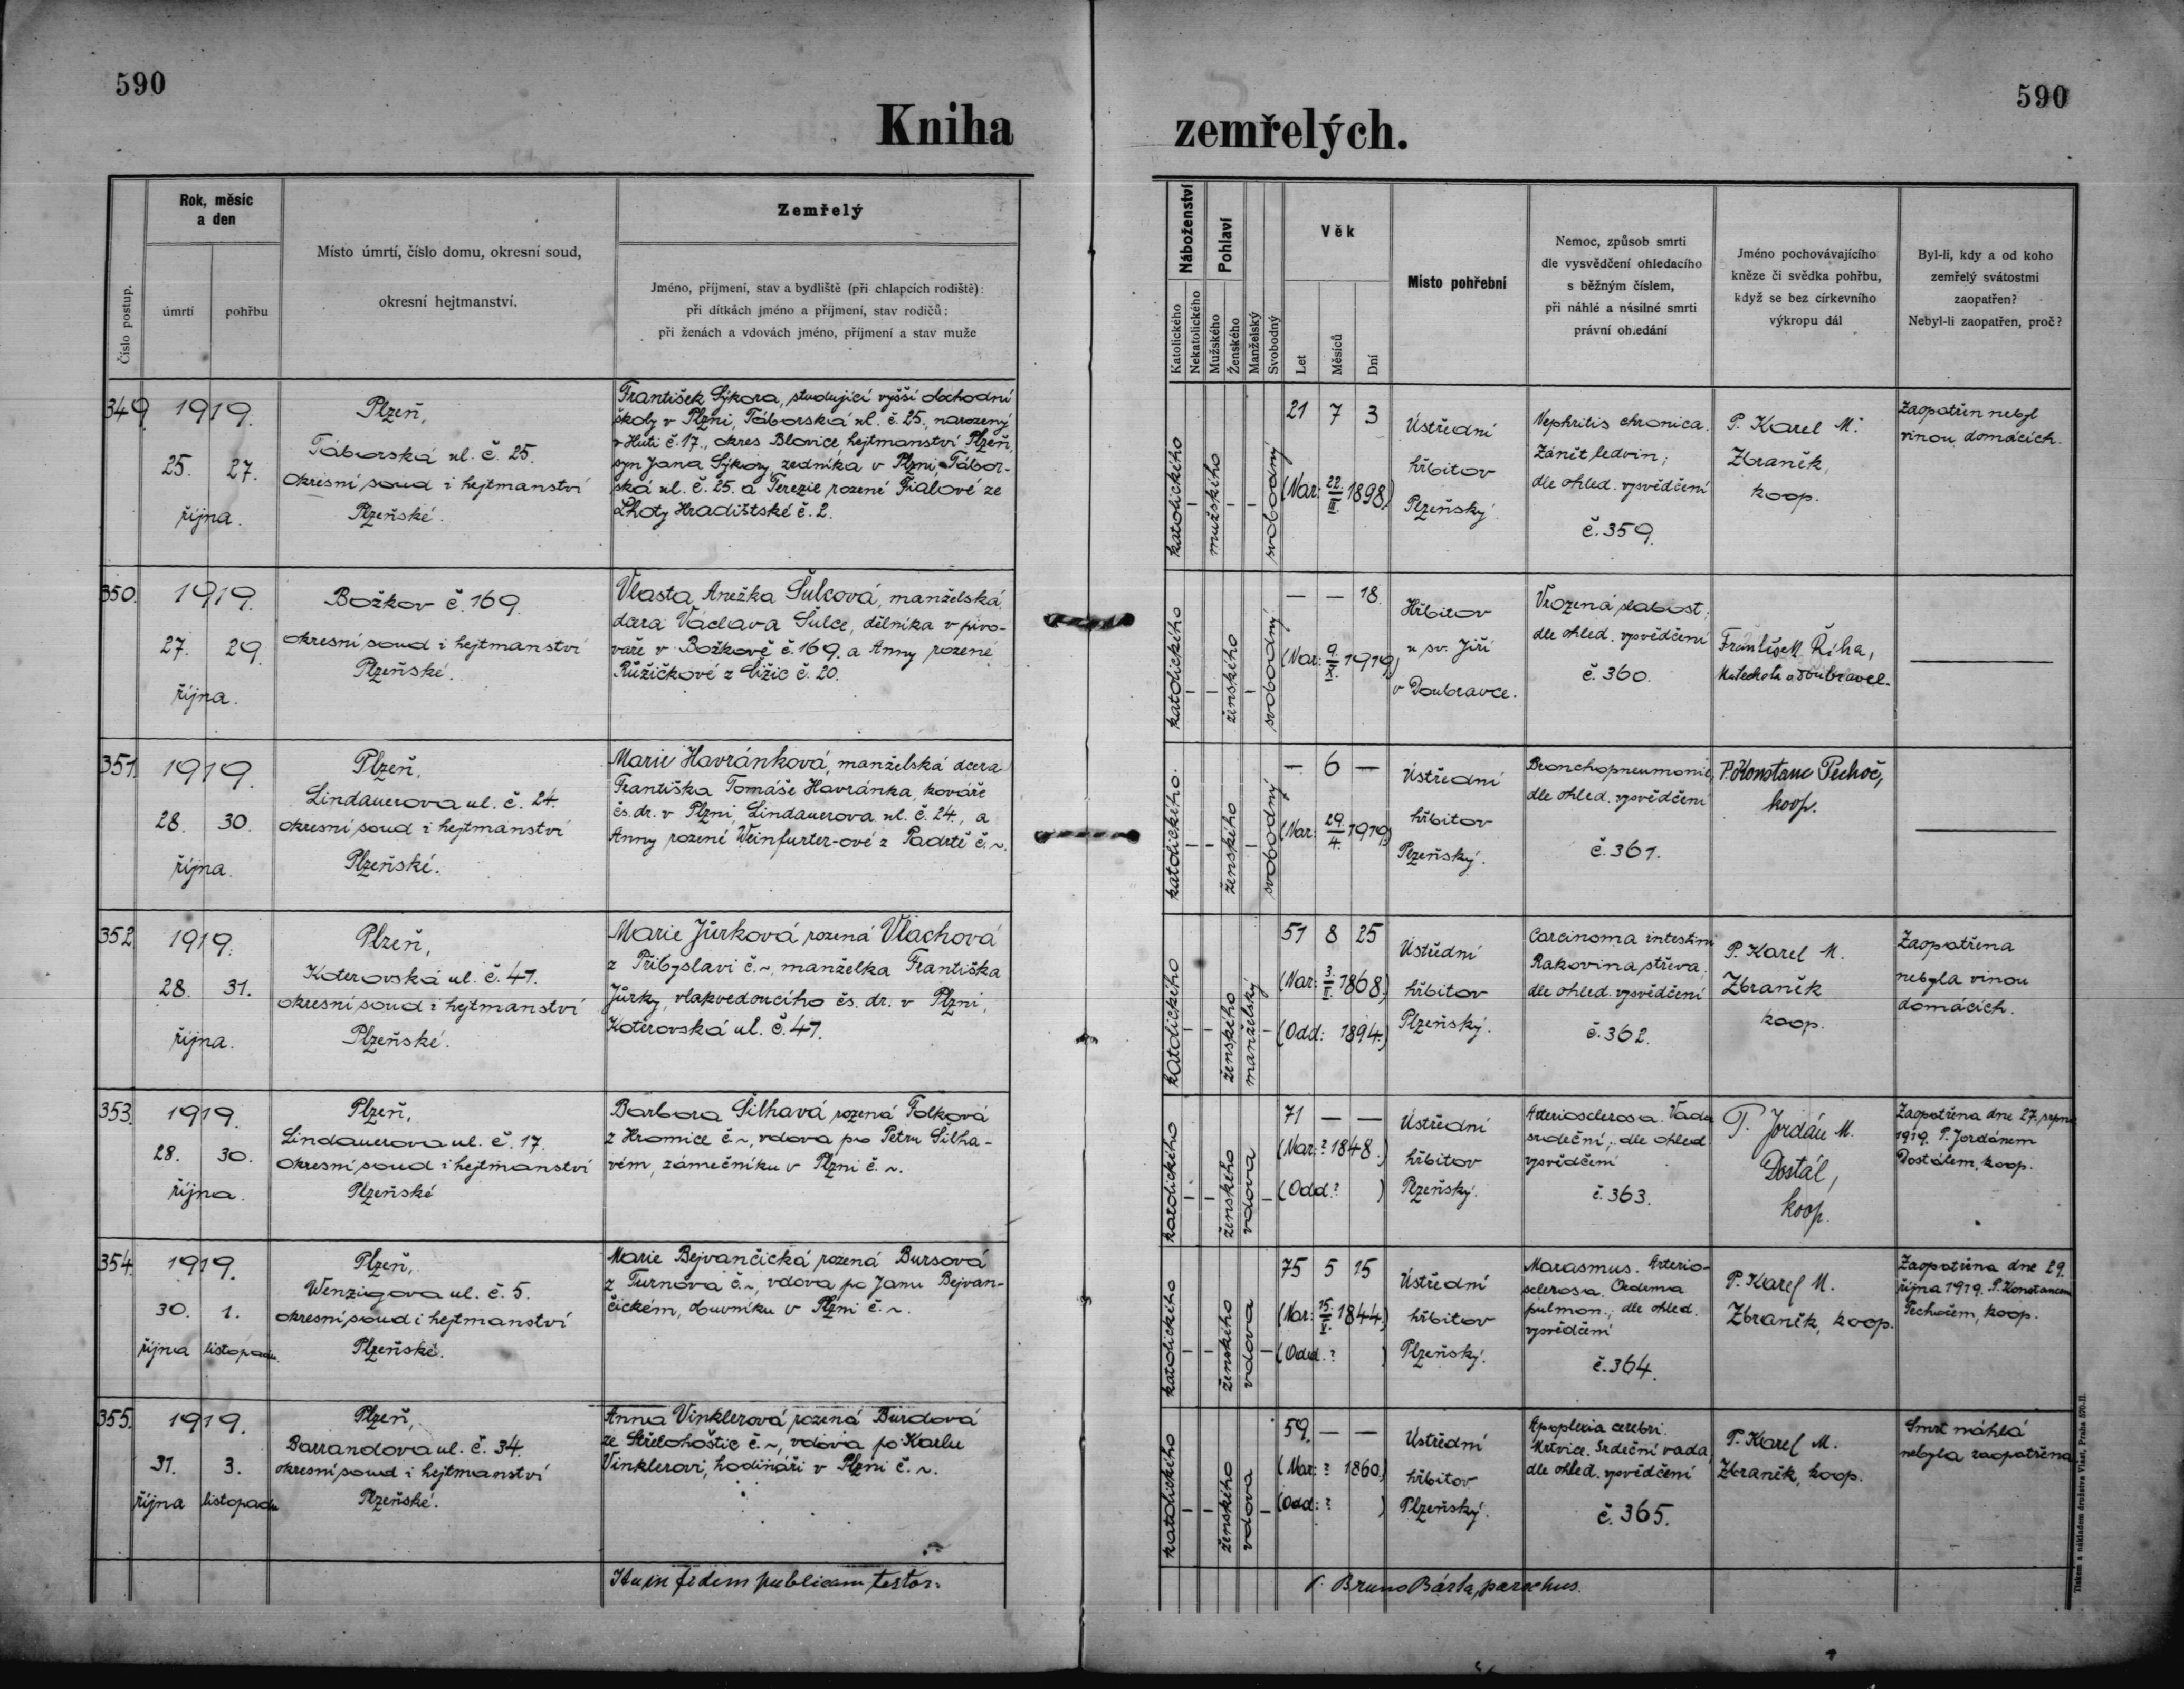 590
590
Kniha zemřelých.
Číslo postup.
Rok, měsíc
a den
úmrtí
pohřbu
Místo úmrtí, číslo domu, okresní soud,
okresní hejtmanství.
Zemřelý
Jméno, příjmení, stav a bydliště (při chlapcích rodiště):
při dítkách jméno a příjmení, stav rodičů:
při ženách a vdovách jméno, příjmení a stav muže
Náboženství
Katolického
Nekatolického
Pohlaví
Mužského
Ženského
Manželský
Svobodný
Věk
Let
Měsíců
Dní
Místo pohřební
Nemoc, způsob smrti
dle vysvědčení ohledacího
s běžným číslem,
při náhlé a násilné smrti
právní ohledání
Jméno pochovávajícího
kněze či svědka pohřbu,
když se bez církevního
výkropu dál
Byl-li, kdy a od koho
zemřelý svátostmi
zaopatřen?
Nebyl-li zaopatřen, proč?
349
1919.
25. 27.
října.
Plzeň,
Táborská ul. č. 25.
okresní soud i hejtmanství
Plzeňské.
František Sýkora, studující vyšší obchodní
školy v Plzni, Táborská ul. č. 25., narozený
v Huti č. 17., okres Blovice, hejtmanství Plzeň,
syn Jana Sýkory, zedníka v Plzni, Tábor-
ská ul. č. 25. a Terezie rozené Fialové ze
Lhoty Hradištské č. 2.
katolického
—
mužského
—
—
svobodný
21 7 3
(Nar: 22./III. 1898)
Ústřední
hřbitov
Plzeňský.
Nephritis chronica.
Zánět ledvin;
dle ohled. vysvědčení
č. 359.
P. Karel M.
Zbraněk,
koop.
Zaopatřen nebyl
vinou domácích.
350.
1919.
27. 29.
října.
Božkov č. 169.
okresní soud i hejtmanství
Plzeňské.
Vlasta Anežka Šulcová, manželská
dcera Václava Šulce, dělníka v pivo-
vaře v Božkově č. 169. a Anny rozené
Růžičkové z Lížic č. 20.
katolického
—
—
ženského
—
svobodný
— — 18.
(Nar: 9./X. 1919)
Hřbitov
u sv. Jiří
v Doubravce.
Vrozená slabost;
dle ohled. vysvědčení
č. 360.
František M. Říha,
katecheta v Doubravce.
—
351.
1919.
28. 30.
října.
Plzeň,
Lindauerova ul. č. 24.
okresní soud i hejtmanství
Plzeňské.
Marie Havránková, manželská dcera
Františka Tomáše Havránka, kováře
čs. dr. v Plzni, Lindauerova ul. č. 24., a
Anny rozené Weinfurter-ové z Padrtě č. ~.
katolického.
—
—
ženského
—
svobodný
— 6 —
(Nar: 29./4. 1919)
Ústřední
hřbitov
Plzeňský.
Bronchopneumonie,
dle ohled. vysvědčení
č. 361.
P. Konstanc Pechoč,
koop.
—
352.
1919.
28. 31.
října.
Plzeň,
Koterovská ul. č. 47.
okresní soud i hejtmanství
Plzeňské.
Marie Jůrková rozená Vlachová
z Přibyslavi č. ~, manželka Františka
Jůrky, vlakvedoucího čs. dr. v Plzni,
Koterovská ul. č. 47.
katolického
—
—
ženského
manželský
—
51 8 25
(Nar: 3./II. 1868)
(Odd: 1894.)
Ústřední
hřbitov
Plzeňský.
Carcinoma intestini
Rakovina střeva;
dle ohled. vysvědčení
č. 362.
P. Karel M.
Zbraněk
koop.
Zaopatřena
nebyla vinou
domácích.
353.
1919.
28. 30.
října.
Plzeň,
Lindauerova ul. č. 17.
okresní soud i hejtmanství
Plzeňské
Barbora Šilhavá rozená Tolková
z Hromice č. ~, vdova po Petru Šilha-
vém, zámečníku v Plzni č. ~.
katolického
—
—
ženského
vdova
—
71 — —
(Nar: ? 1848.)
(Odd. ? )
Ústřední
hřbitov
Plzeňský.
Arteriosclerosa. Vada
srdeční; dle ohled
vysvědčení
č. 363.
P. Jordán M.
Dostál,
koop.
Zaopatřena dne 27. srpna
1919. P. Jordánem
Dostálem, koop.
354.
1919.
30. 1.
října listopadu
Plzeň,
Wenzigova ul. č. 5.
okresní soud i hejtmanství
Plzeňské.
Marie Bejvančická rozená Bursová
z Turnova č. ~, vdova po Janu Bejvan-
čickém, obuvníku v Plzni č. ~.
katolického
—
—
ženského
vdova
—
75 5 15
(Nar: 15./V. 1844)
(Odd. ? )
Ústřední
hřbitov
Plzeňský.
Marasmus. Arterio-
sclerosa. Oedema
pulmon.; dle ohled.
vysvědčení
č. 364.
P. Karel M.
Zbraněk, koop.
Zaopatřena dne 29.
října 1919. P. Konstancem
Pechočem, koop.
355.
1919.
31. 3.
října listopadu
Plzeň,
Barrandova ul. č. 34.
okresní soud i hejtmanství
Plzeňské.
Anna Vinklerová rozená Burdová
ze Střelohoštic č. ~, vdova po Karlu
Vinklerovi, hodináři v Plzni č. ~.
katolického
—
—
ženského
vdova
—
59. — —
(Nar: ? 1860.)
(Odd: ? )
Ústřední
hřbitov
Plzeňský.
Apoplexia cerebri.
Mrtvice. Srdeční vada;
dle ohled. vysvědčení
č. 365.
P. Karel M.
Zbraněk, koop.
Smrt náhlá
nebyla zaopatřena.
Ita in fidem publicam testor:
P. Bruno Bárta, parochus.
Tiskem a nákladem družstva Vlast, Praha 570-II.